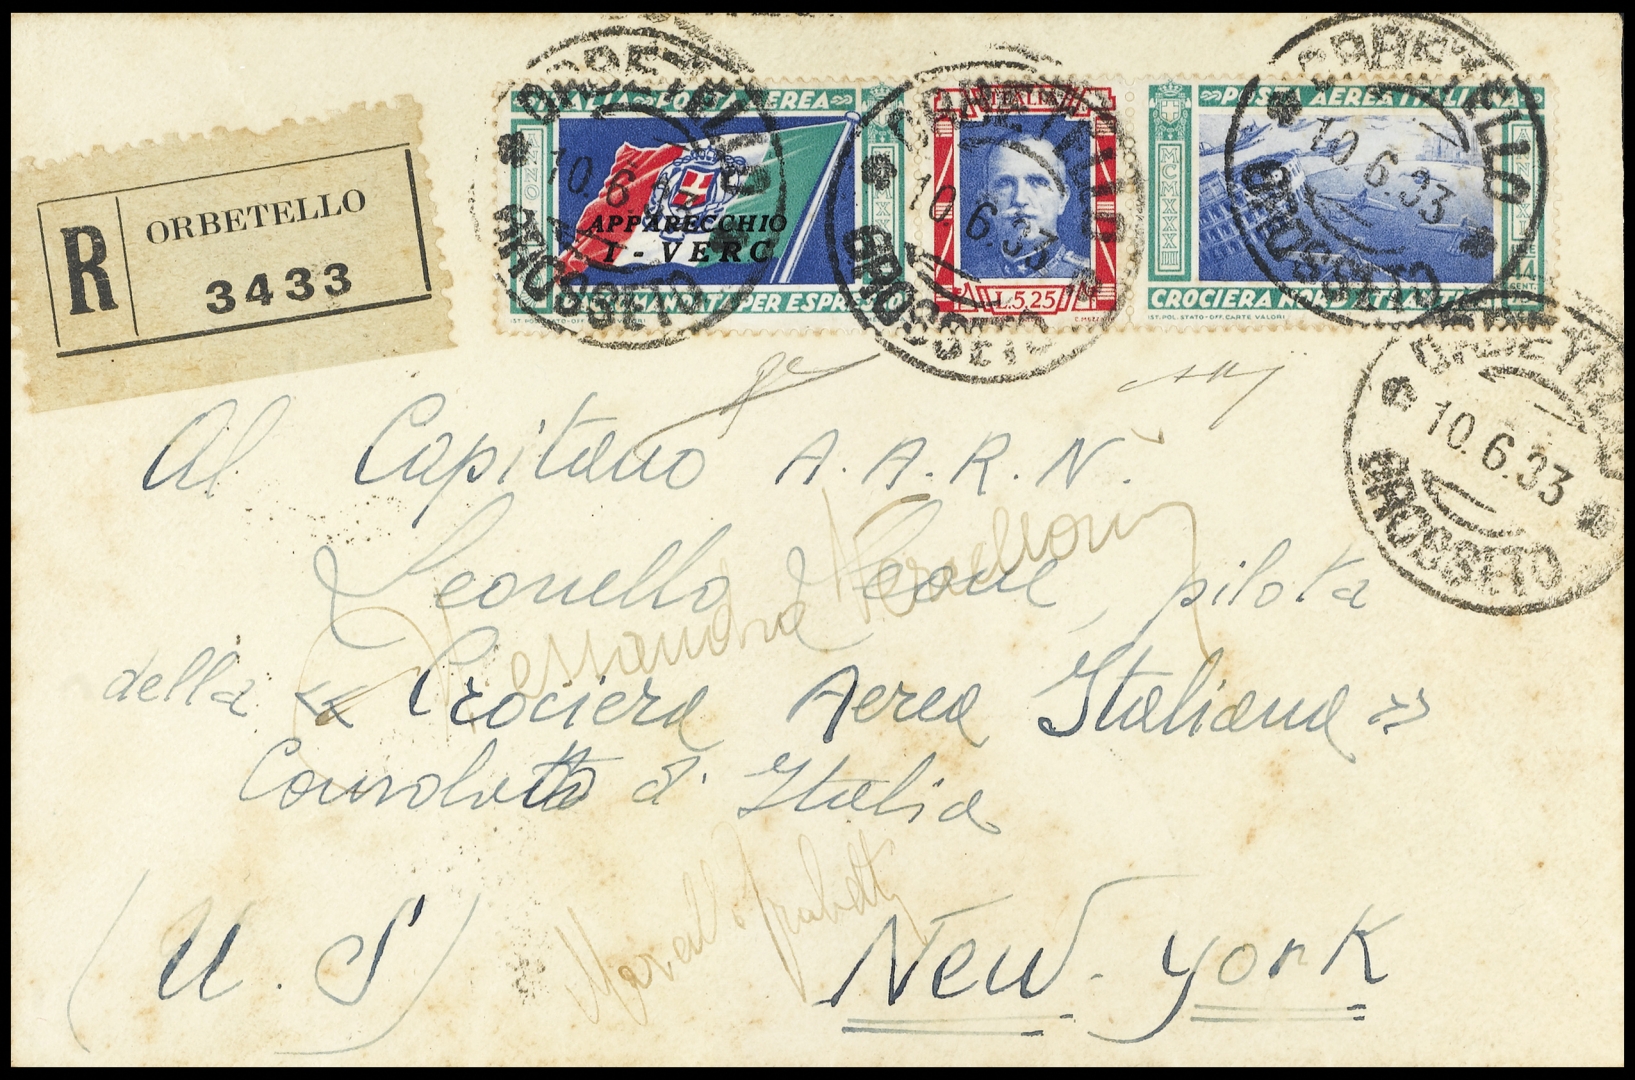 R ORBETELLO
3433
ITALIA POSTA AEREA
APPARECCHIO
I - VERC
RACCOMANDATA PER ESPRESSO
IST. POL. STATO-OFF. CARTE VALORI
ITALIA
L.5,25
POSTA AEREA ITALIANA
MCMXXXIII
CROCIERA NORD ATLANTICA
IST. POL. STATO-OFF. CARTE VALORI
ORBETELLO
10.6.33
GROSSETO
ORBETELLO
10.6.33
GROSSETO
ORBETELLO
10.6.33
GROSSETO
ORBETELLO
10.6.33
GROSSETO
Al Capitano A.A.R.N.
Leonello Leone, pilota
della « Crociera Aerea Italiana »
Consolato d'Italia
(U.S) New-York